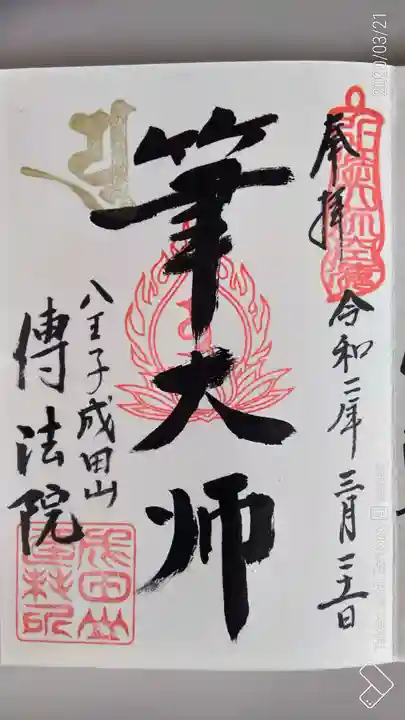 2020/03/21
奉拝
令和二年三月二十一日
筆大师
八王子成田山
傳法院